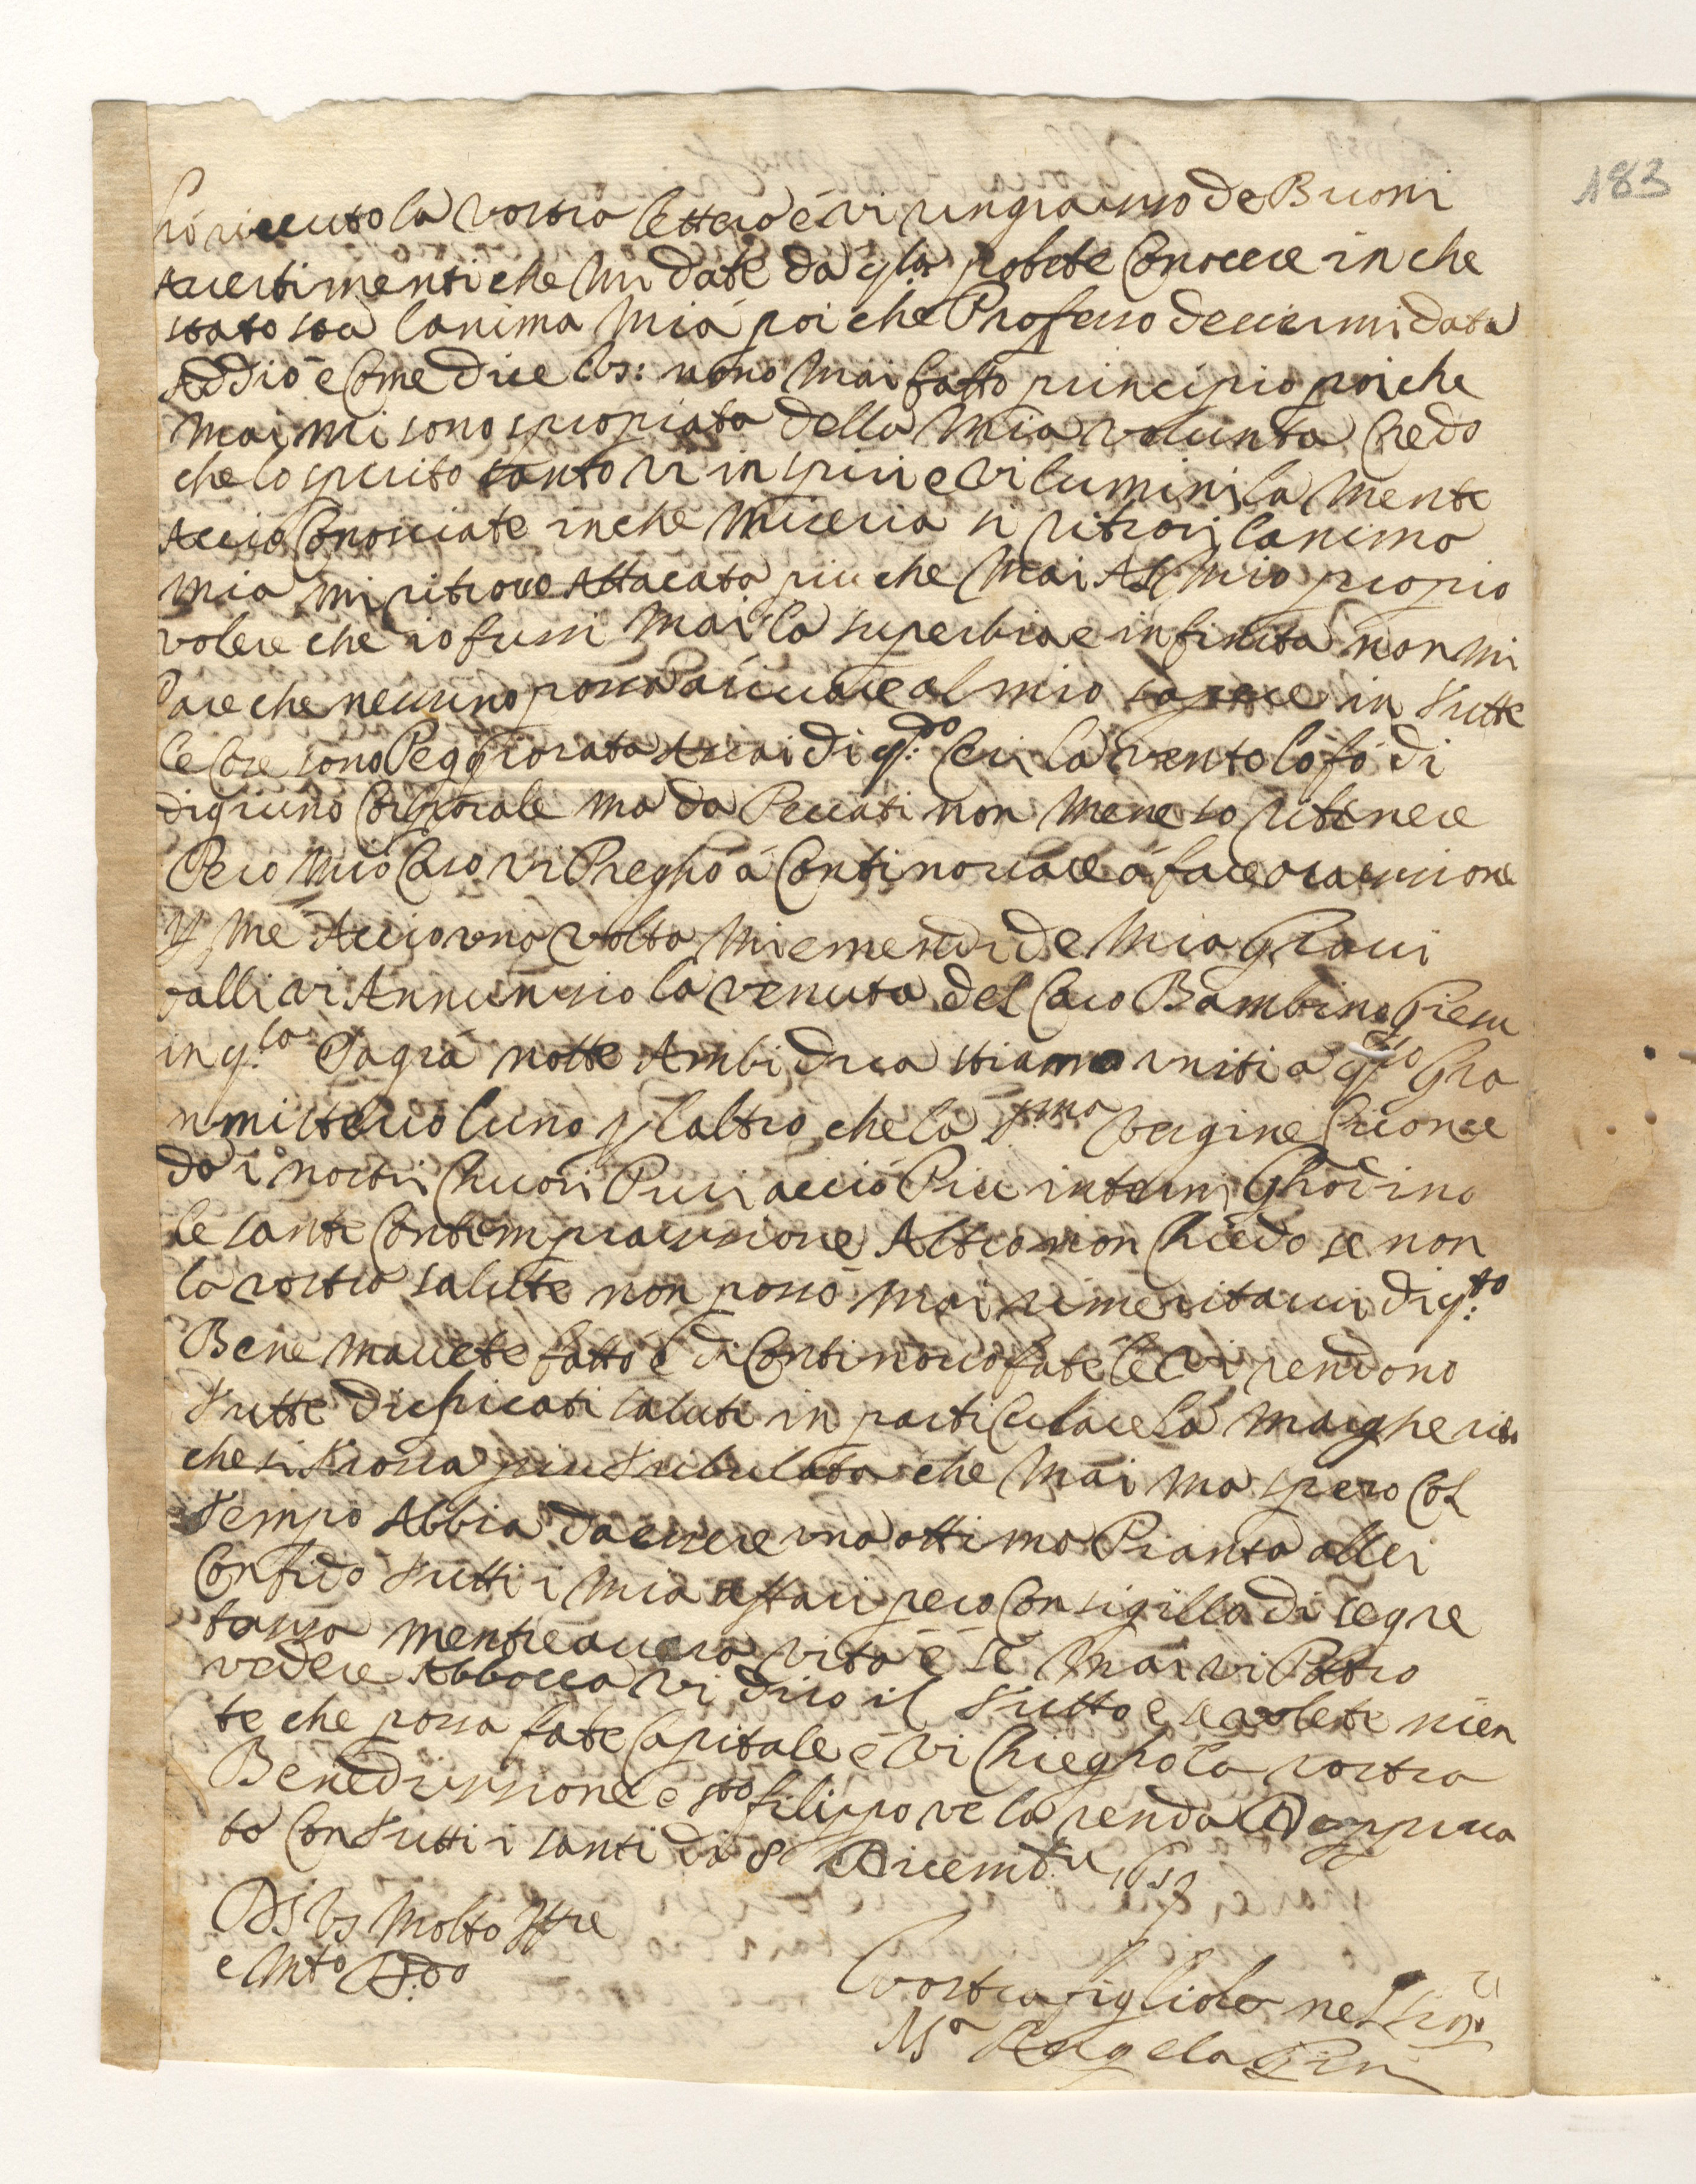 183
hó riceuto la vostra lettera é vi ringraimo de Buoni
Auertimenti che Mi date da q.la potete Conoscere in che
stato stá lanima Mia poi che Professo desermi data
Addio é Come dice Vs: nono Mai fatto principio poi che
Mai mi sono spropiata della Mia volunta Credo
che lo spirito santo vi inspiri e vi lumini la Mente
Accio Conosciate in che Miseria si ritrovi lanima
mia mi ritrovo Attacata piu che Mai Al mio propio
volere che io fussi Mai la superbia e infinita non mi
Pare che nessuno possa Arivare al mio sapere in tutte
le Cose sono Peggiorata Assai di q.do Cri la vento lo fo di
digiuno Corporale ma da Peccati non Mene so ritenere
Pero Mio Caro vi Pregho á Continovare á fare orassione
p Me Accio una volta Mi emendi de Mia Graui
falli vi Annunsio la venuta del Caro Bambino Giesu
in q.la Sagra notte Ambi dua stiamo uniti a q.sto Gra
n misterio luno p laltro che la S.ma Vergine Cricone
da i nostri Chuori Puri acció Piu interni Ghodino
le sante Contemprassione Altro non Chiedo se non
la vostra salute non posso mai rimeritarui di q.to
Bene mauete fatto é di Continovo fate le vi rendono
tutte dupricati saluti in particulare la Margherita
che si trova piu tribulata che Mai ma spero Col
tempo Abbia da essere una ottima Pianta allei
Confido tutti i Mia affari pero Con sigillo di segre
tansa mentre auero vita é se Mai vi Potro
vedere Abbocca vi diro il tutto e se volete nien
te che possa fate Capitale é vi Chiegho la vostra
Benedissione e sto filippo ve la renda Dupprica
ta Con tutti i santi da 8 Dicembre 1659
Di Vs Molto Ill.re
e Mto Rdo
Vostra figliola nel Sig.re
M.a Angela Gini